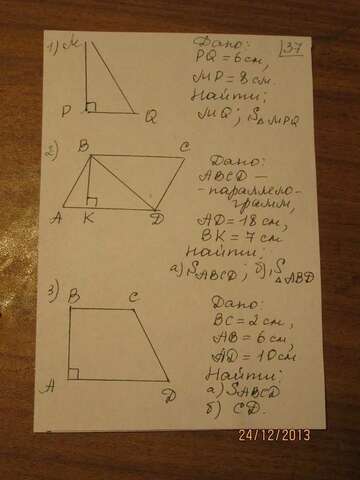 1) M
P
Q
Дано:
37
PQ = 6 см,
MP = 8 см.
Найти:
MQ ; S△MPQ
2)
B
C
A
K
D
Дано:
ABCD —
- параллело-
грамм,
AD = 18 см,
BK = 7 см
Найти:
а) SABCD ; б) S△ABD
3)
B
C
A
D
Дано:
BC = 2 см,
AB = 6 см,
AD = 10 см
Найти:
а) SABCD
б) CD.
24/12/2013